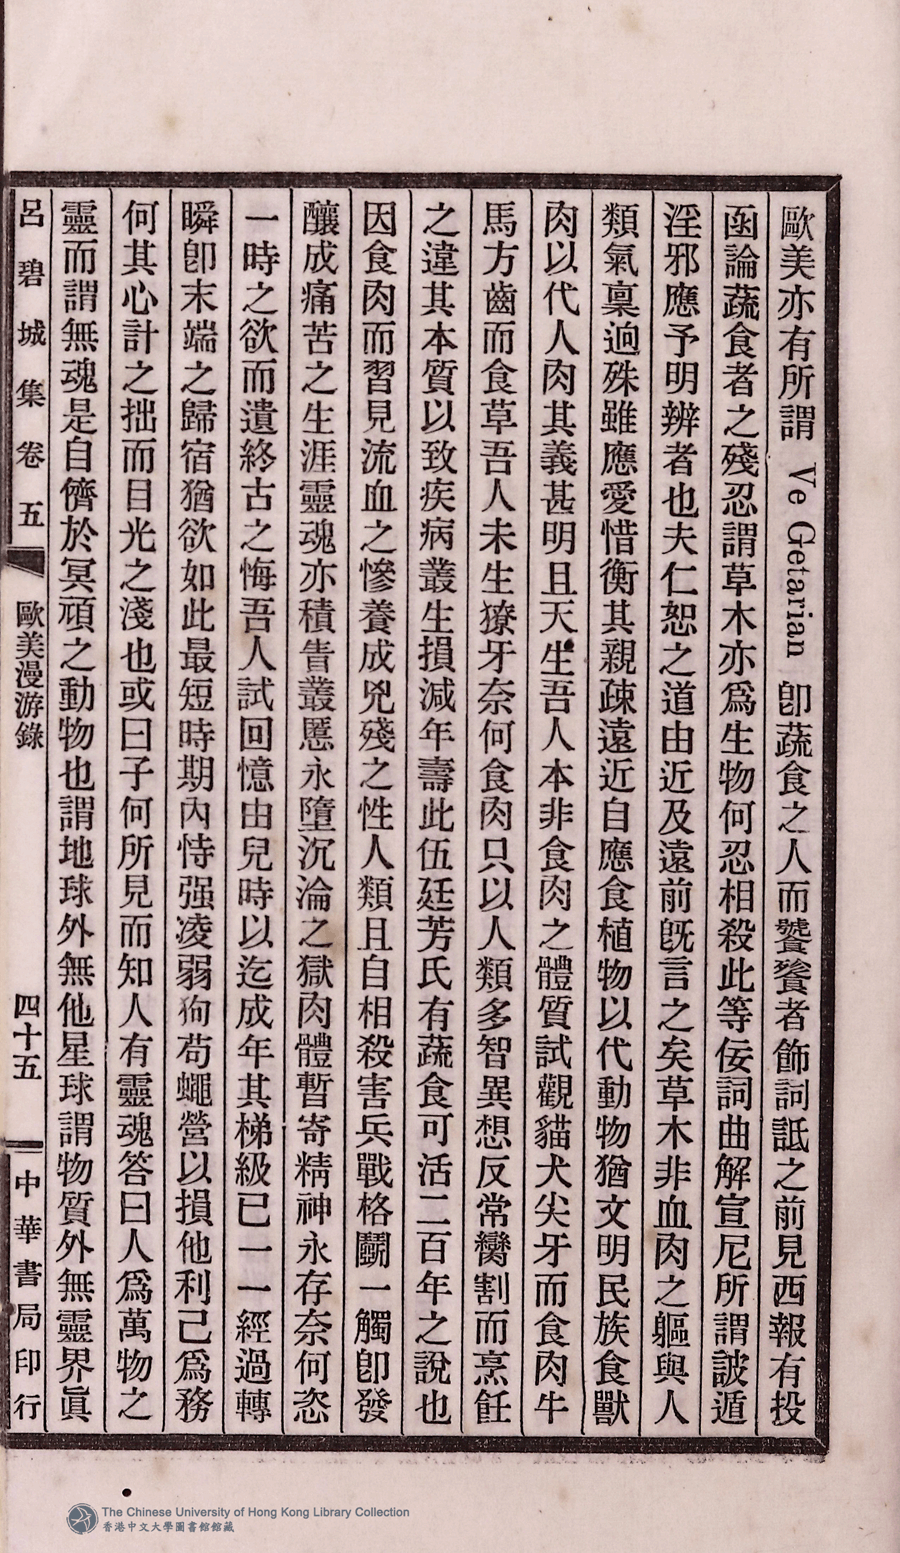 歐美亦有所謂 Ve Getarian 卽蔬食之人而饕餮者飾詞詆之前見西報有投
函論蔬食者之殘忍謂草木亦爲生物何忍相殺此等佞詞曲解宣尼所謂詖遁
淫邪應予明辨者也夫仁恕之道由近及遠前旣言之矣草木非血肉之軀與人
類氣稟迥殊雖應愛惜衡其親疎遠近自應食植物以代動物猶文明民族食獸
肉以代人肉其義甚明且天生吾人本非食肉之體質試觀貓犬尖牙而食肉牛
馬方齒而食草吾人未生獠牙奈何食肉只以人類多智異想反常臠割而烹飪
之違其本質以致疾病叢生損減年壽此伍廷芳氏有蔬食可活二百年之說也
因食肉而習見流血之慘養成兇殘之性人類且自相殺害兵戰格鬭一觸卽發
釀成痛苦之生涯靈魂亦積眚叢慝永墮沉淪之獄肉體暫寄精神永存奈何恣
一時之欲而遺終古之悔吾人試回憶由兒時以迄成年其梯級已一一經過轉
瞬卽末端之歸宿猶欲如此最短時期內恃强凌弱狗苟蠅營以損他利己爲務
何其心計之拙而目光之淺也或曰子何所見而知人有靈魂答曰人爲萬物之
靈而謂無魂是自儕於冥頑之動物也謂地球外無他星球謂物質外無靈界眞
呂碧城集卷五 歐美漫游錄 四十五 中華書局印行
The Chinese University of Hong Kong Library Collection
香港中文大學圖書館館藏